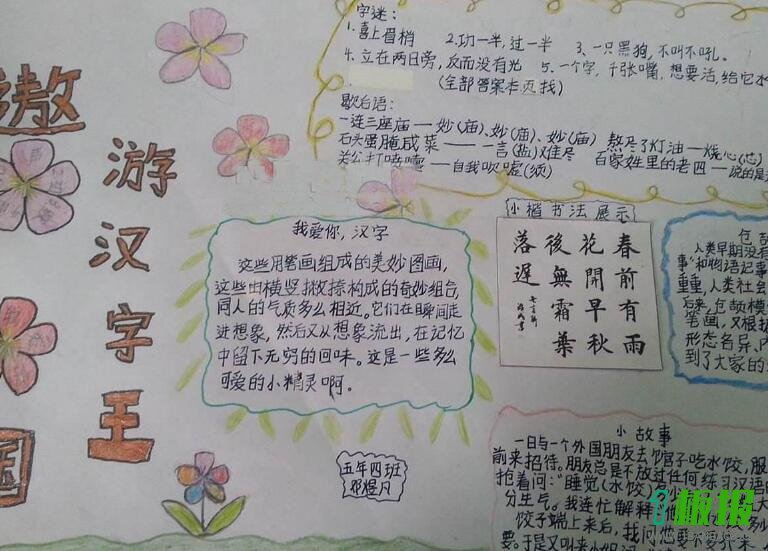 遨
游
汉
字
王
国
字迷：
1.喜上眉梢 2.功一半，过一半 3、一只黑狗，不叫不吼。
4.立在两日旁，反而没有光 5.一个字，千张嘴，想要活，给它水
（全部答案本页找）
歇后语：
一连三座庙——妙（庙）、妙（庙）、妙（庙） 熬尽了灯油—烧心（芯）
石头蛋腌咸菜——一言（盐）难尽 百家姓里的老四—说的是
关公打喷嚏——自我吹嘘（须）
我爱你，汉字
这些用笔画组成的美妙图画，
这些由横竖撇捺构成的奇妙组合，
同人的气质多么相近。它们在瞬间走
进想象，然后又从想象流出，在记忆
中留下无穷的回味。这是一些多么
可爱的小精灵啊。
五年四班
邓煜凡
小楷书法展示
春前有雨
花開早秋
後無霜葉
落遲
仓颉
人类早期没有
事"和"物语记事
重重，人类社会
后来，仓颉模
笔画，又根据
形态名异、内
到了大家的
小故事
一日与一个外国朋友去饺子馆吃水饺，服
前来招待。朋友总是不放过任何练习汉语的
抢着问："睡觉（水饺）
分生气。我连忙解释
饺子端上来后，我问他要不要
要。于是又叫来小姐
板报